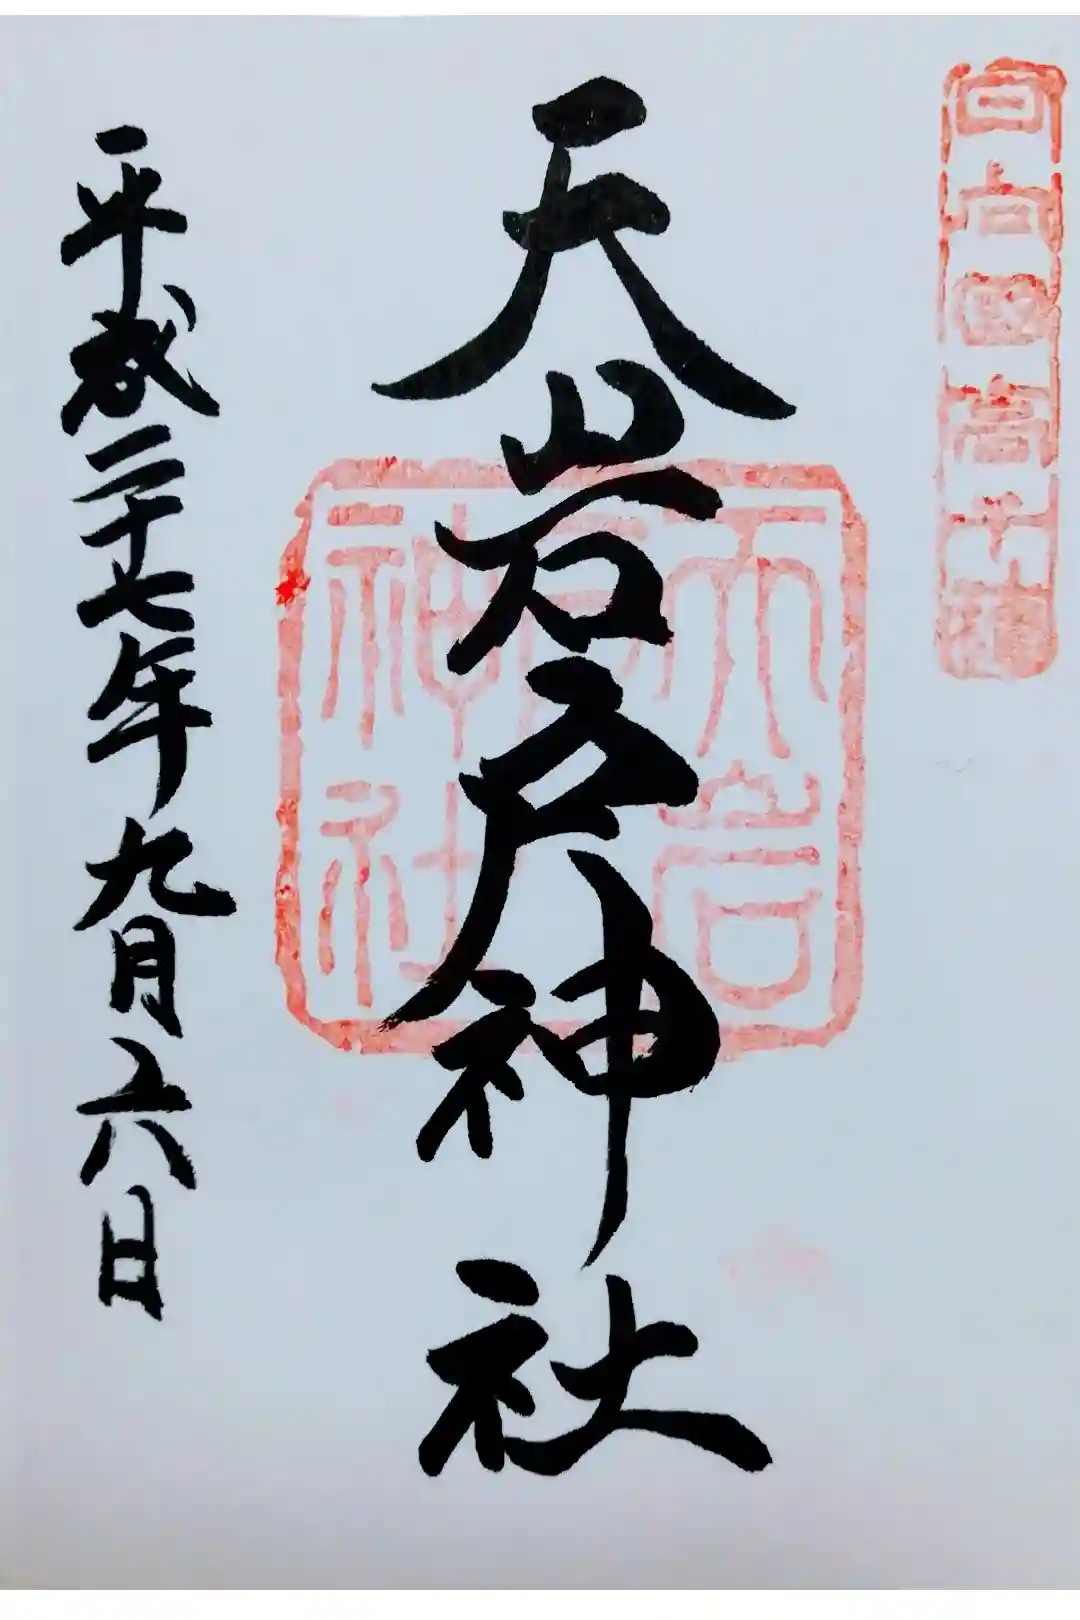 日向国高千穂
天岩戸神社
天岩戸
神社
平成二十七年九月六日